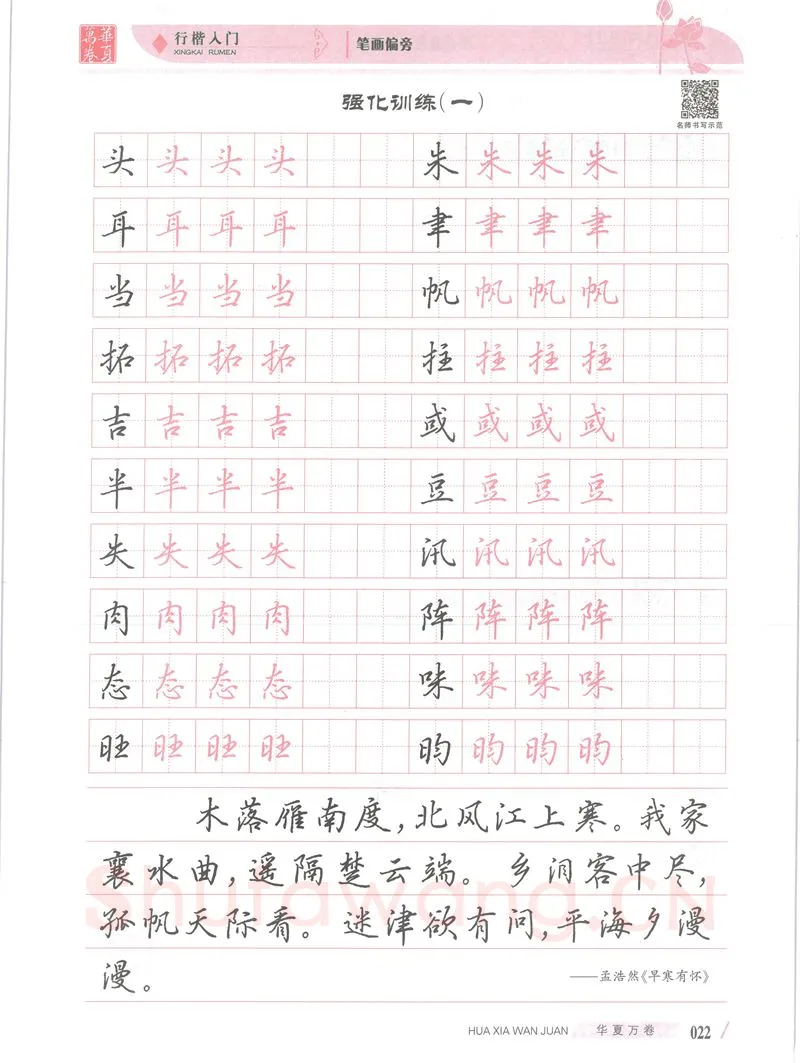 華夏萬卷
行楷入门
XINGKAI RUMEN
笔画偏旁
强化训练(一)
名师书写示范
头 头 头 头 朱 朱 朱 朱
耳 耳 耳 耳 聿 聿 聿 聿
当 当 当 当 帆 帆 帆 帆
拓 拓 拓 拓 拄 拄 拄 拄
吉 吉 吉 吉 或 或 或 或
半 半 半 半 豆 豆 豆 豆
失 失 失 失 汛 汛 汛 汛
肉 肉 肉 肉 阵 阵 阵 阵
态 态 态 态 咪 咪 咪 咪
旺 旺 旺 旺 昀 昀 昀 昀
木落雁南度,北风江上寒。我家
襄水曲,遥隔楚云端。乡泪客中尽,
孤帆天际看。迷津欲有问,平海夕漫
漫。
——孟浩然《早寒有怀》
Shufawang.CN
HUA XIA WAN JUAN 华夏万卷 022